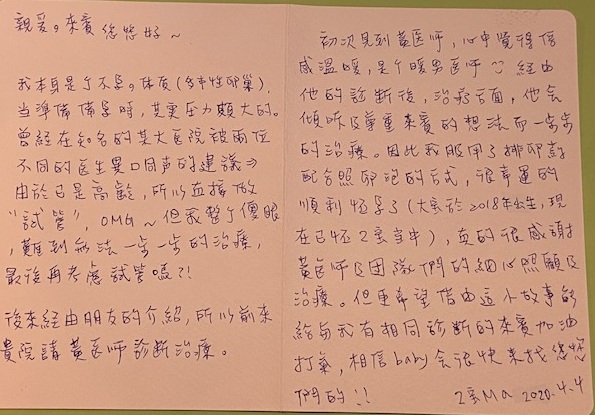 親愛。來賓您您好~
我本身是个不孕。体質(多囊性卵巢),
當準備備孕時,其實压力頗大的。
曾經在知名的某大医院被兩位
不同的医生異口同声的建議⇒
由於已是高齡,所以直接做
"試管",OMG~但我整个傻眼
,難到無法一步一步的治療,
最後再考慮試管嗎?!
後來經由朋友的介紹,所以前來
貴院請黃医师診斷治療。
初次見到黃医师,心中覺得倍
感溫暖,是个暖男医师 經由
他的診斷後,治療方面,他会
傾听及尊重來賓的想法而一步步
的治療。因此我服用了排卵藥
配合照卵泡的方式,很幸運的
順利怀孕了(大寶於2018年出生,現
在已怀2寶當中),真的很感謝
黃医师及团隊們的細心照顧及
治療。但更希望借由這小故事能
給与我有相同診斷的來賓加油
打氣,相信baby会很快來找您您
們的!!
2寶Ma 2020.4.4